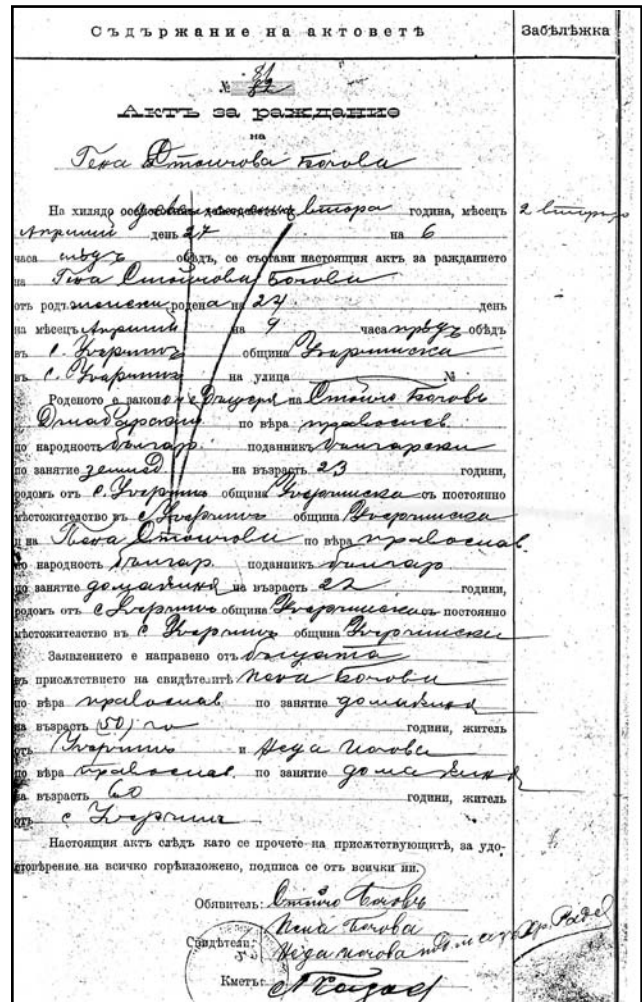 Съдържание на актоветѣ
Забѣлѣжка
№ 81
82
Актъ за раждение
на
Гена Стоичова Бочова
На хилядо година, мѣсецъ
втора
2 втора
Априлий день 27 на 6
часа слѣдъ обѣдъ, се състави настоящия актъ за ражданието
на Гена Стоичова Бочова
отъ родъ женски родена на 27 день
на мѣсецъ Априлий на 9 часа прѣдъ обѣдъ
въ с. Угърчинъ община Угърчинска
въ с. Угърчинъ на улица №
Роденото е законна дъщеря на Стойчо Бочовъ
по вѣра православ.
по народность българ. поданникъ български
по занятие землед. на възрасть 23 години,
родомъ отъ с. Угърчинъ община Угърчинска съ постоянно
мѣстожителство въ с. Угърчинъ община Угърчинска
и на Пена Стоичова по вѣра православ.
по народность българ. поданникъ българ.
по занятие домакиня на възрасть 22 години,
родомъ отъ с. Угърчинъ община Угърчинска съ постоянно
мѣстожителство въ с. Угърчинъ община Угърчинска
Заявлението е направено отъ бащата
въ присѫтствието на свидѣтелитѣ Пена Бочова
по вѣра православ. по занятие домакиня
на възрасть (50) години, житель
отъ Угърчинъ и Неда Иочова
по вѣра православ. по занятие домакиня
на възрасть 60 години, житель
отъ с. Угърчинъ
Настоящия актъ слѣдъ като се прочете на присѫтствующитѣ, за удо-
стовѣрение на всичко горѣизложено, подписа се отъ всички ни.
Обявитель: Стойчо Бочовъ
Свидѣтели: Пена Бочова
Неда Иочова
Кметъ: